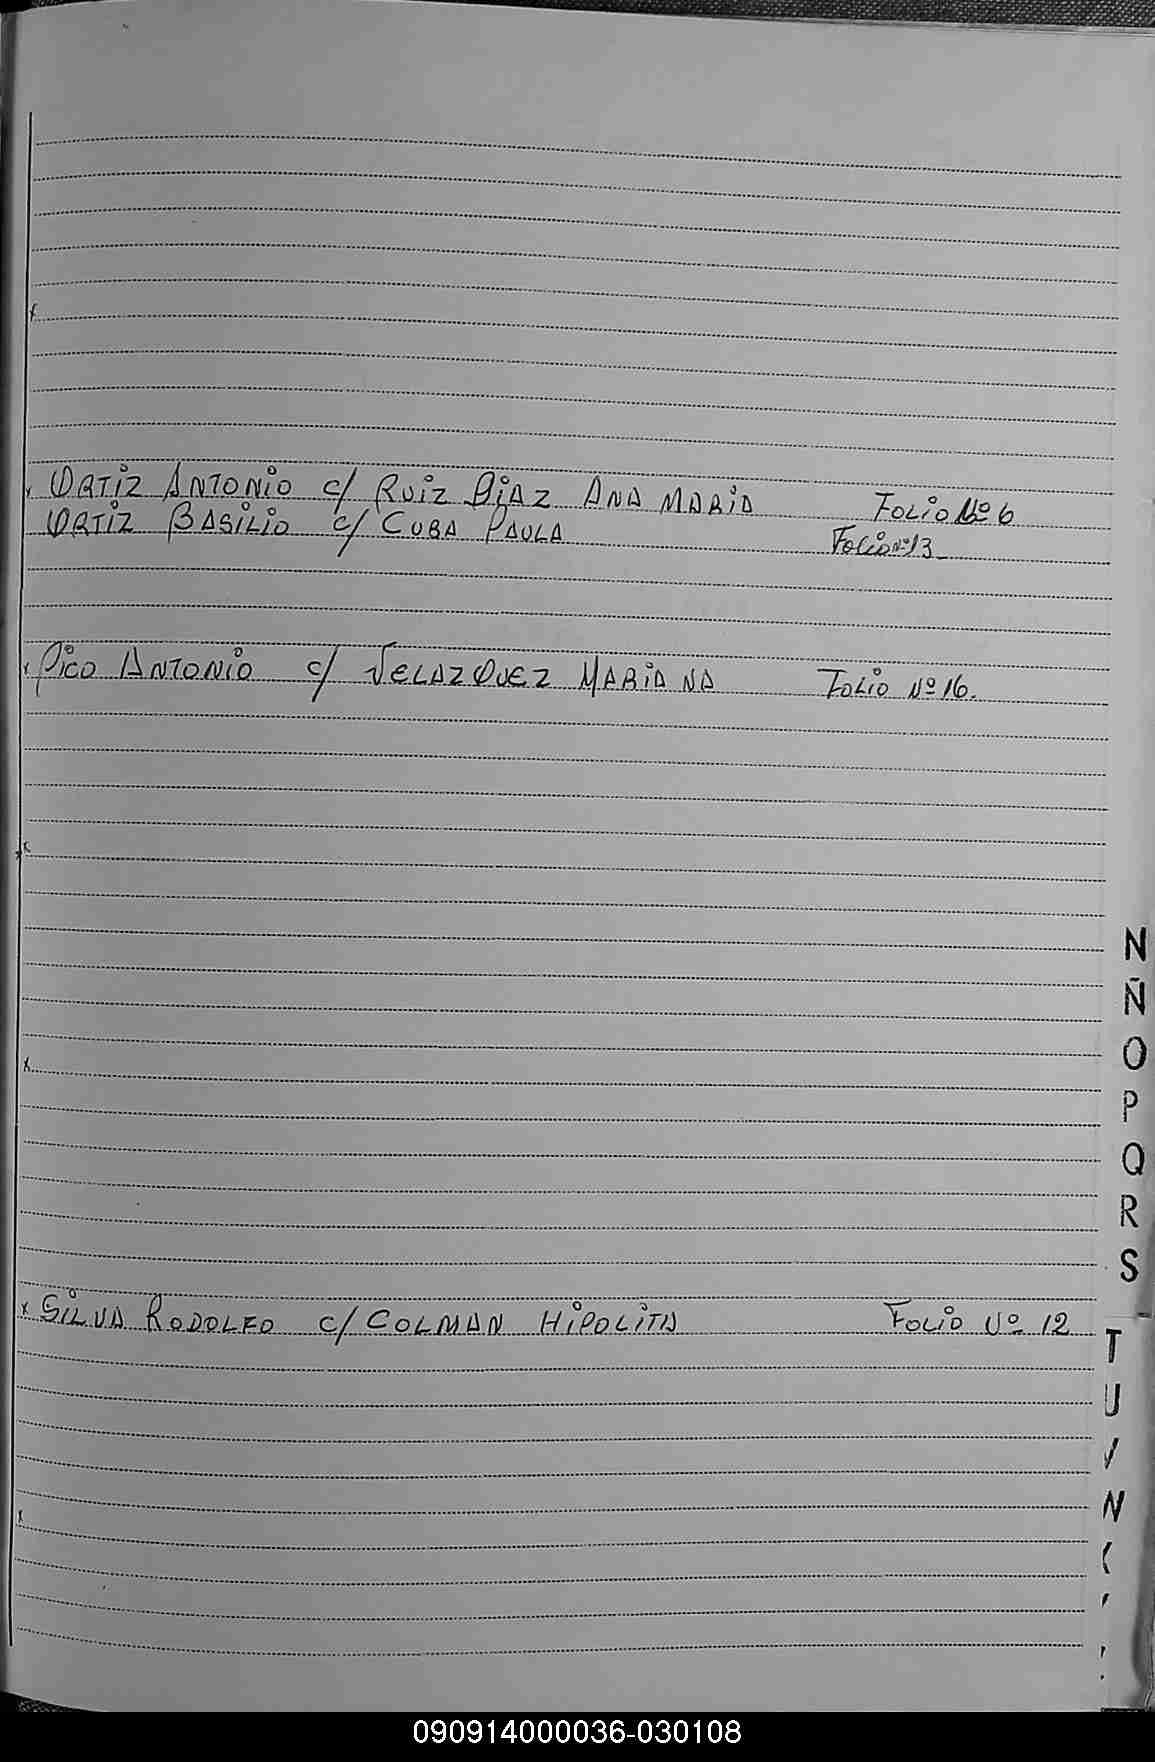 x Ortiz Antonio c/ Ruiz Diaz Ana Maria Folio Nº 6
Ortiz Basilio c/ Cuba Paula Folio Nº 13
x Pico Antonio c/ Velazquez Mariana Folio Nº 16.
N
Ñ
O
P
Q
R
S
x Silva Rodolfo c/ Colman Hipolita Folio Nº 12
T
U
V
090914000036-030108